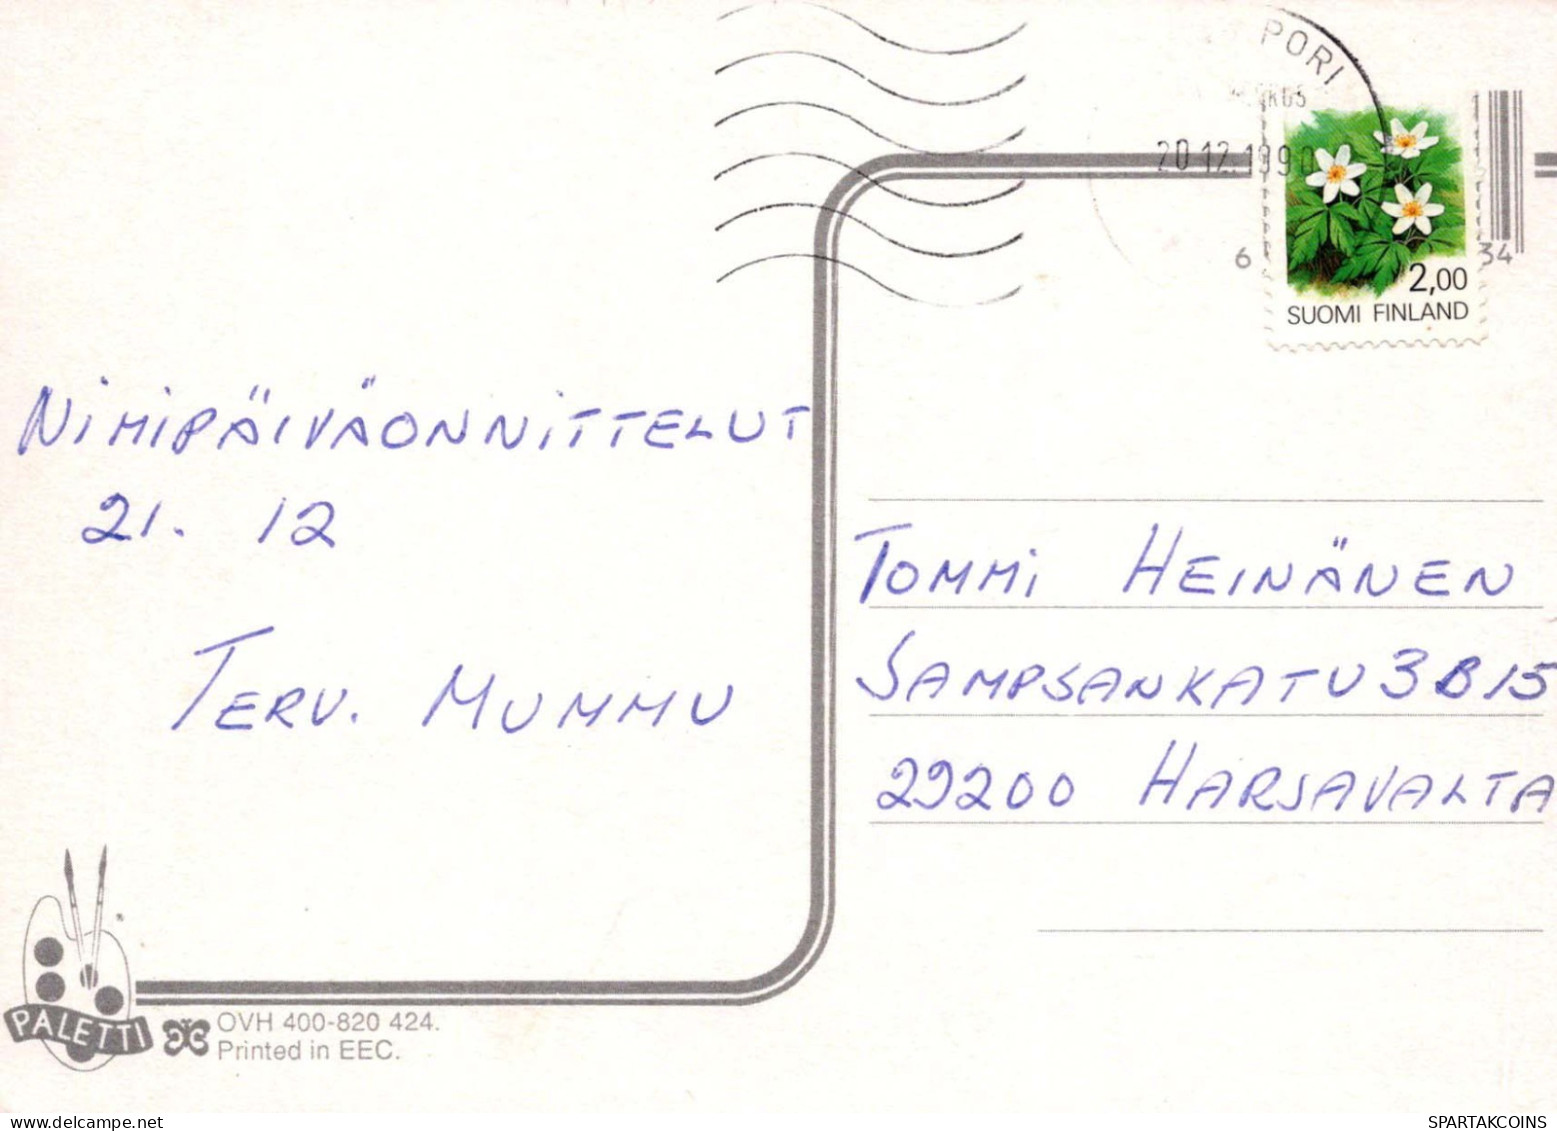 PORI
20.12.1990
6
34
2,00
SUOMI FINLAND
NIMIPÄIVÄONNITTELUT
21. 12
TERV. MUMMU
TOMMI HEINÄNEN
SAMPSANKATU 3 B 15
29200 HARJAVALTA
PALETTI
OVH 400-820 424.
Printed in EEC.
SPARTAKCOINS